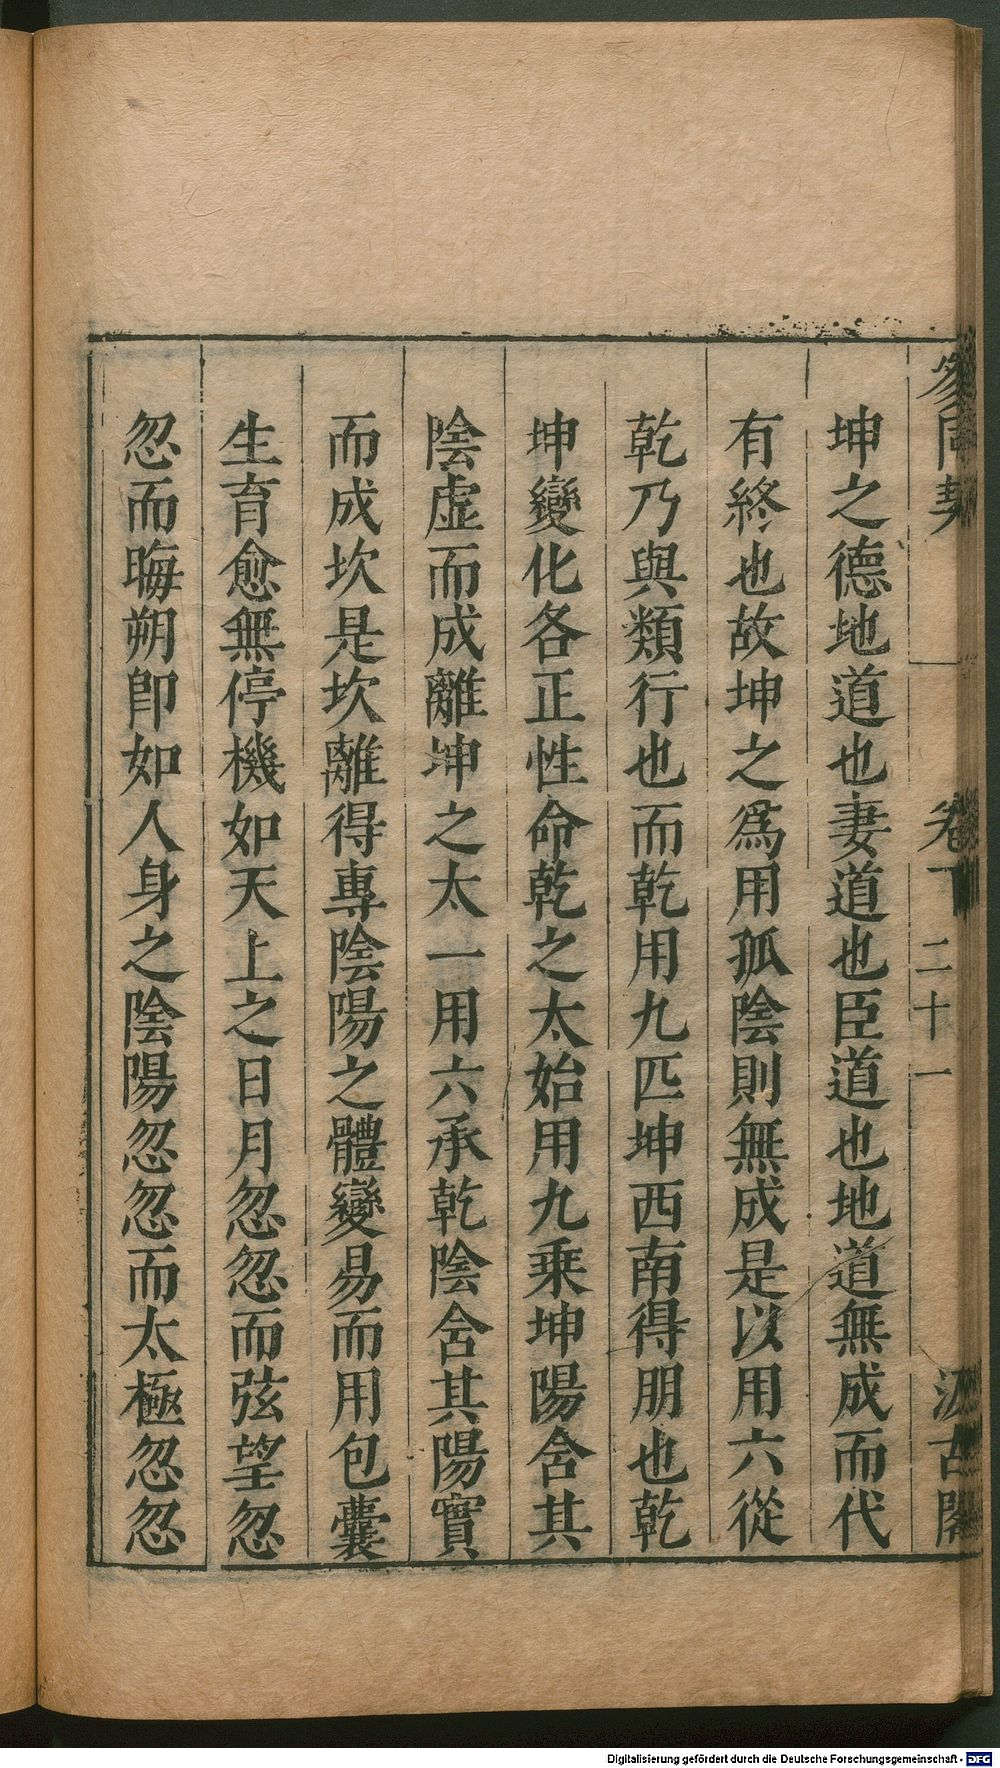 參同契 卷下 二十一 汲古閣
坤之德地道也妻道也臣道也地道無成而代
有終也故坤之爲用孤陰則無成是以用六從
乾乃與類行也而乾用九匹坤西南得朋也乾
坤變化各正性命乾之太始用九乘坤陽含其
陰虛而成離坤之太一用六承乾陰含其陽實
而成坎是坎離得專陰陽之體變易而用包囊
生育愈無停機如天上之日月忽忽而弦望忽
忽而晦朔卽如人身之陰陽忽忽而太極忽忽
Digitalisierung gefördert durch die Deutsche Forschungsgemeinschaft - DFG